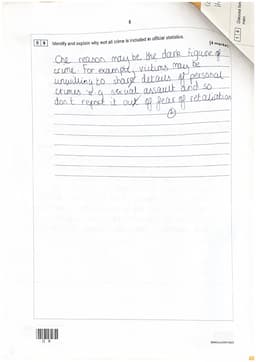 8
1 6 Identify and explain why not all crime is included in official statistics.
[4 marks]
One reason may be the dark figure of
crime. For example, victims may be
unwilling to share details of personal
crimes e.g sexual assault and so
don't report it out of fear of retaliation